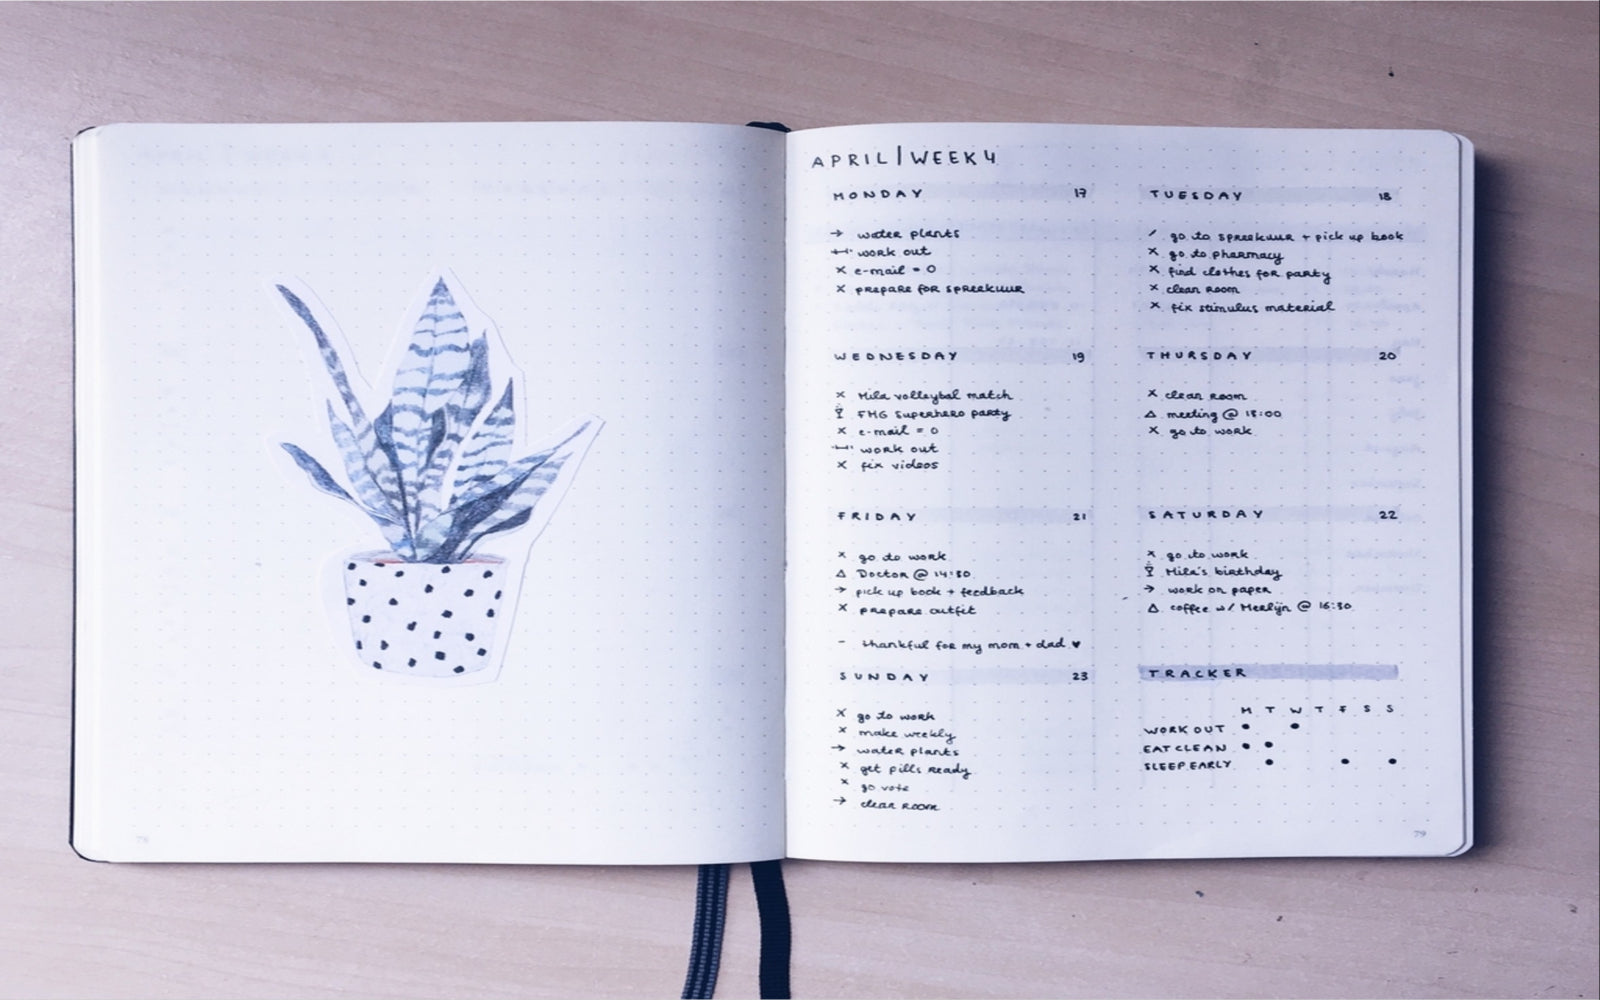 APRIL | WEEK 4
MONDAY 17
→ water plants
work out
× e-mail = 0
× prepare for spreekuur
TUESDAY 18
/ go to spreekuur + pick up book
× go to pharmacy
× find clothes for party
× clean room
× fix stimulus material
WEDNESDAY 19
× Mila volleybal match
FMG Superhero party
× e-mail = 0
work out
× fix videos
THURSDAY 20
× clean room
△ meeting @ 18:00
× go to work
FRIDAY 21
× go to work
△ Doctor @ 14:30
→ pick up book + feedback
× prepare outfit
- thankful for my mom + dad ♥
SATURDAY 22
× go to work
Mila's birthday
→ work on paper
△ coffee w/ Merlijn @ 16:30
SUNDAY 23
× go to work
× make weekly
→ water plants
× get pills ready
× go vote
→ clean room
TRACKER
M T W T F S S
WORK OUT • •
EAT CLEAN • •
SLEEP EARLY • • •
78
79